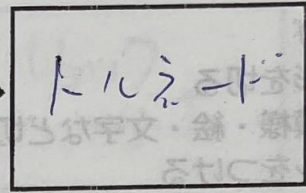 トルネード